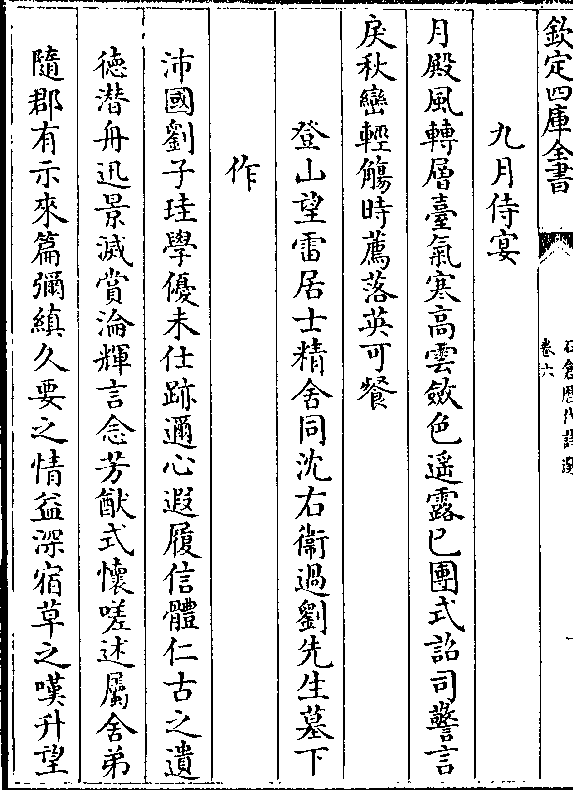 欽定四庫全書
石倉歷代詩選
卷六
九月侍宴
月殿風轉層臺氣寒高雲斂色遥露已團式詔司警言
戾秋巒輕觴時薦落英可餐
登山望雷居士精舍同沈右衞過劉先生墓下
作
沛國劉子珪學優未仕跡邇心遐履信體仁古之遺
德潛舟迅景滅賞淪輝言念芳猷式懷嗟述屬舍弟
隨郡有示來篇彌縝久要之情益深宿草之嘆升望